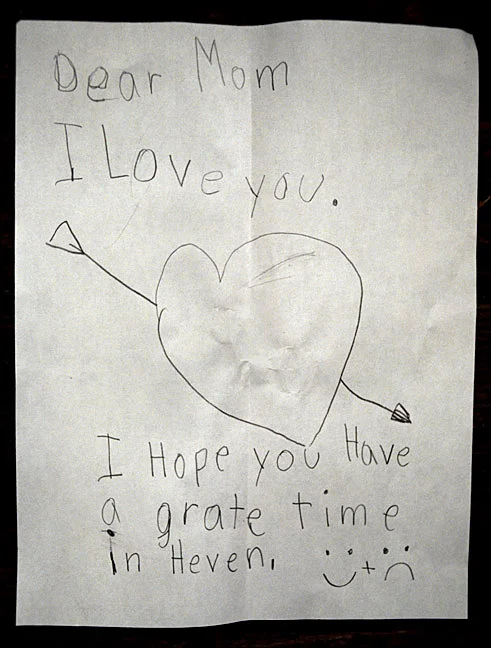 Dear Mom
I Love you.
I Hope you Have
a grate time
in Heven.